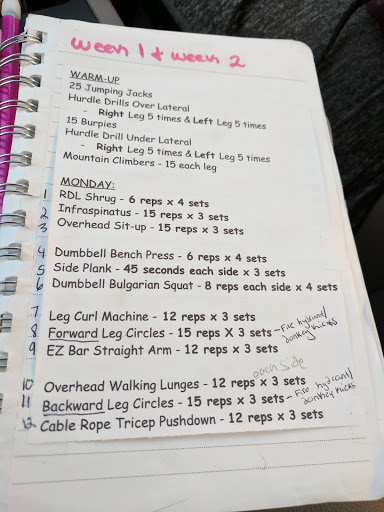 Week 1 & Week 2
WARM-UP
25 Jumping Jacks
Hurdle Drills Over Lateral
- Right Leg 5 times & Left Leg 5 times
15 Burpies
Hurdle Drill Under Lateral
- Right Leg 5 times & Left Leg 5 times
Mountain Climbers - 15 each leg
MONDAY:
1 RDL Shrug - 6 reps x 4 sets
2 Infraspinatus - 15 reps x 3 sets
3 Overhead Sit-up - 15 reps x 3 sets
4 Dumbbell Bench Press - 6 reps x 4 sets
5 Side Plank - 45 seconds each side x 3 sets
6 Dumbbell Bulgarian Squat - 8 reps each side x 4 sets
7 Leg Curl Machine - 12 reps x 3 sets
8 Forward Leg Circles - 15 reps X 3 sets - Fire hydrant/
donkey kicks
9 EZ Bar Straight Arm - 12 reps x 3 sets
each side
10 Overhead Walking Lunges - 12 reps x 3 sets
11 Backward Leg Circles - 15 reps x 3 sets - Fire hydrant/
donkey kicks
12 Cable Rope Tricep Pushdown - 12 reps x 3 sets